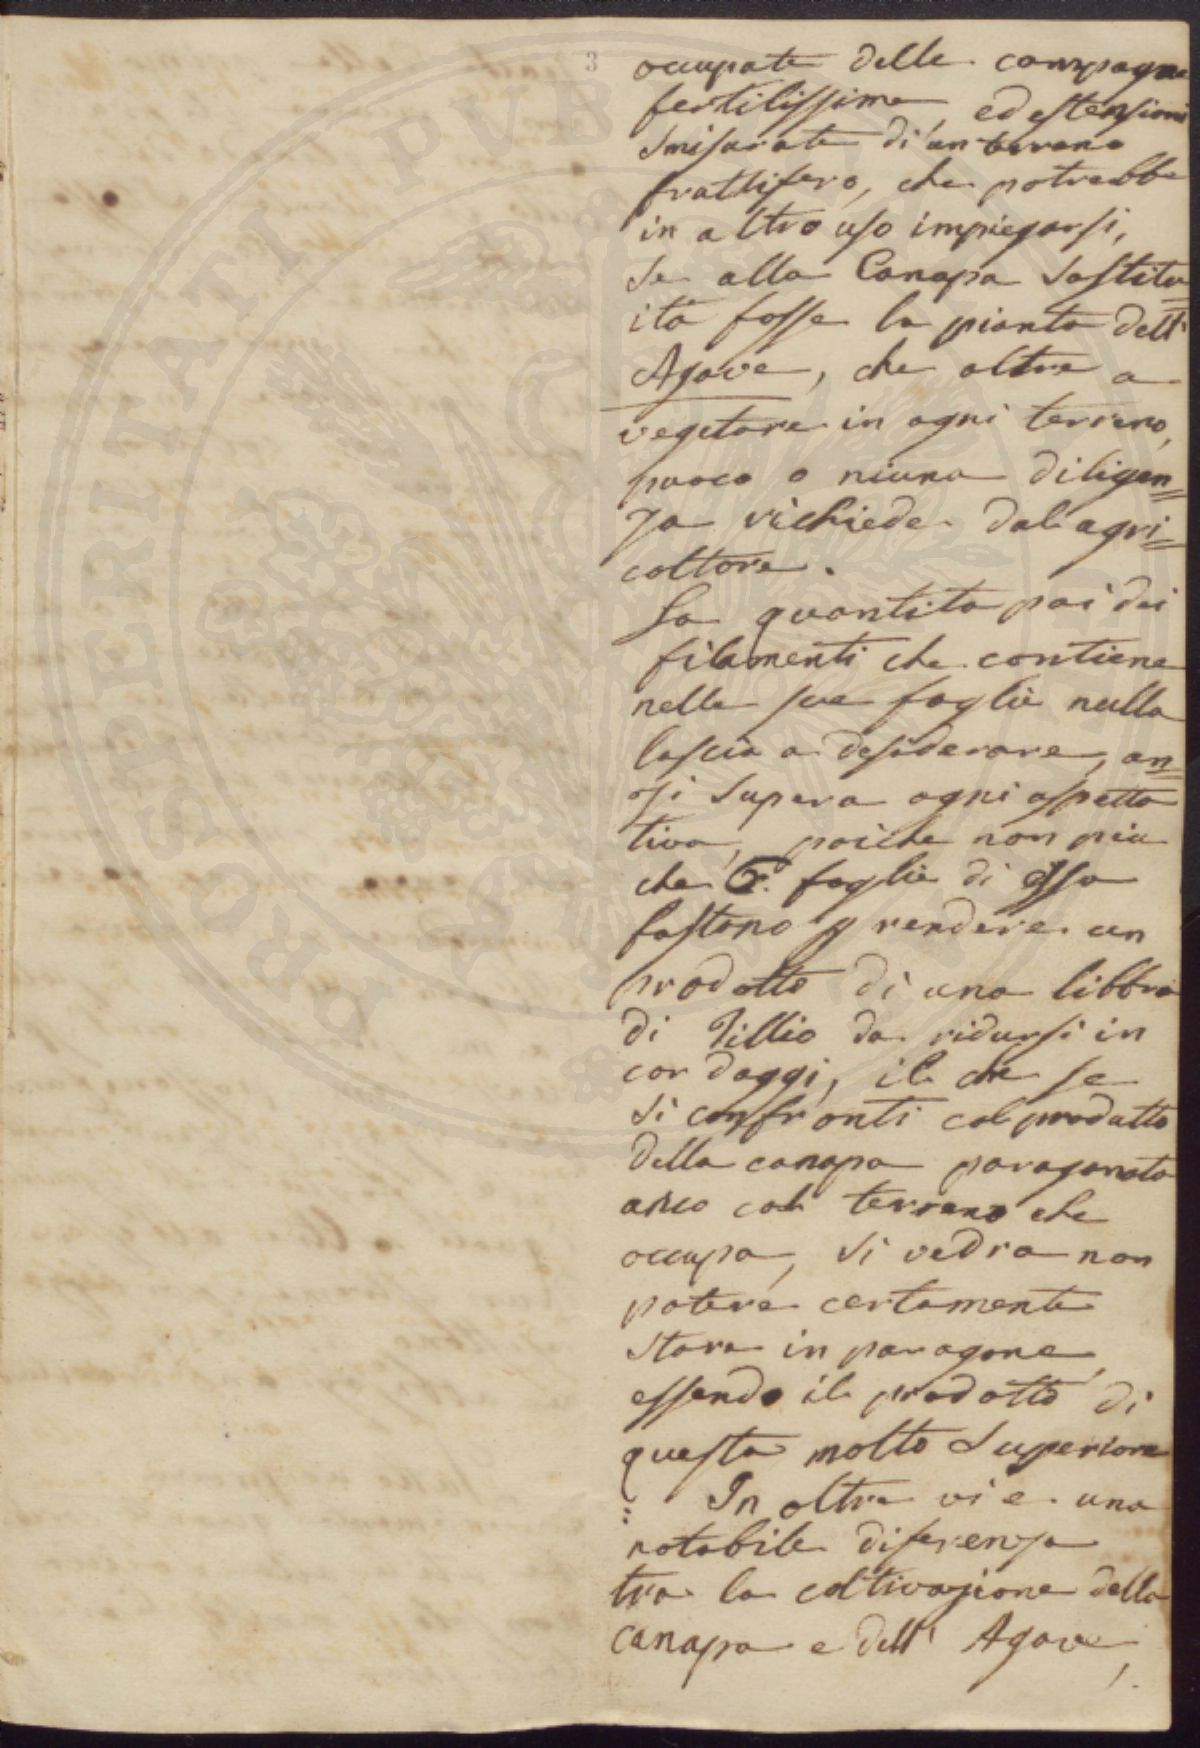 3
occupate delle campagne
fertilissime, ed estensioni
smisurate di un terreno
fruttifero, che potrebbe
in altro uso impiegarsi,
se alla Canapa sostitu
ita fosse la pianta dell'
Agave, che oltre a
vegetare in ogni terreno,
puoco o niuna diligen=
za richiede dal agri=
coltore.
La quantita poi dei
filamenti che contiene
nelle sue foglie nulla
lascia a desiderare, an=
zi supera ogni aspetta
tiva, poiche non piu
che 6. foglie di essa
bastano p rendere un
prodotto di una libbra
di Tillio da ridursi in
cordaggi, il che se
si confronti col prodotto
della canapa paragonato
anco col terreno che
occupa, si vedra non
potere certamente
stare in paragone,
essendo il prodotto di
questa molto superiore
In oltre vi e una
notabile diferenza
tra la coltivazione della
canapa e dell' Agave,
PROSPERITATI PVBLICAE